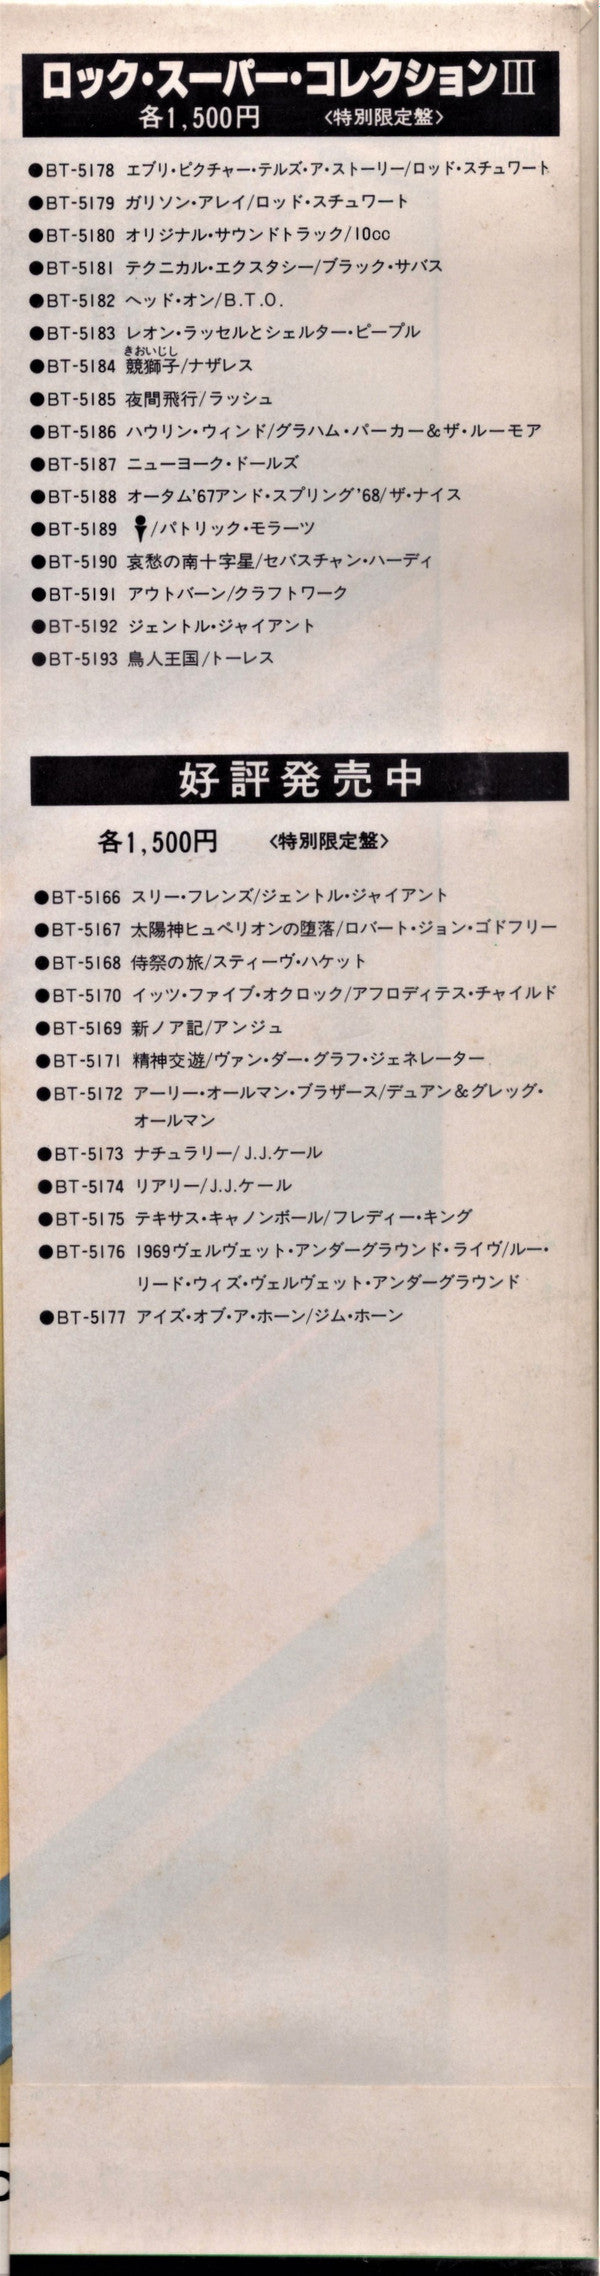 ロック・スーパー・コレクションIII
各1,500円 〈特別限定盤〉
●BT-5178 エブリ・ピクチャー・テルズ・ア・ストーリー/ロッド・スチュワート
●BT-5179 ガソリン・アレイ/ロッド・スチュワート
●BT-5180 オリジナル・サウンドトラック/10cc
●BT-5181 テクニカル・エクスタシー/ブラック・サバス
●BT-5182 ヘッド・オン/B.T.O.
●BT-5183 レオン・ラッセルとシェルター・ピープル
きおいじし
●BT-5184 競獅子/ナザレス
●BT-5185 夜間飛行/ラッシュ
●BT-5186 ハウリン・ウィンド/グラハム・パーカー&ザ・ルーモア
●BT-5187 ニューヨーク・ドールズ
●BT-5188 オータム'67アンド・スプリング'68/ザ・ナイス
●BT-5189 /パトリック・モラーツ
●BT-5190 哀愁の南十字星/セバスチャン・ハーディ
●BT-5191 アウトバーン/クラフトワーク
●BT-5192 ジェントル・ジャイアント
●BT-5193 鳥人王国/トーレス
好評発売中
各1,500円 〈特別限定盤〉
●BT-5166 スリー・フレンズ/ジェントル・ジャイアント
●BT-5167 太陽神ヒュペリオンの堕落/ロバート・ジョン・ゴドフリー
●BT-5168 侍祭の旅/スティーヴ・ハケット
●BT-5170 イッツ・ファイブ・オクロック/アフロディテス・チャイルド
●BT-5169 新ノア記/アンジュ
●BT-5171 精神交遊/ヴァン・ダー・グラフ・ジェネレーター
●BT-5172 アーリー・オールマン・ブラザース/デュアン&グレッグ・
オールマン
●BT-5173 ナチュラリー/J.J.ケール
●BT-5174 リアリー/J.J.ケール
●BT-5175 テキサス・キャノンボール/フレディー・キング
●BT-5176 1969ヴェルヴェット・アンダーグラウンド・ライヴ/ルー・
リード・ウィズ・ヴェルヴェット・アンダーグラウンド
●BT-5177 アイズ・オブ・ア・ホーン/ジム・ホーン